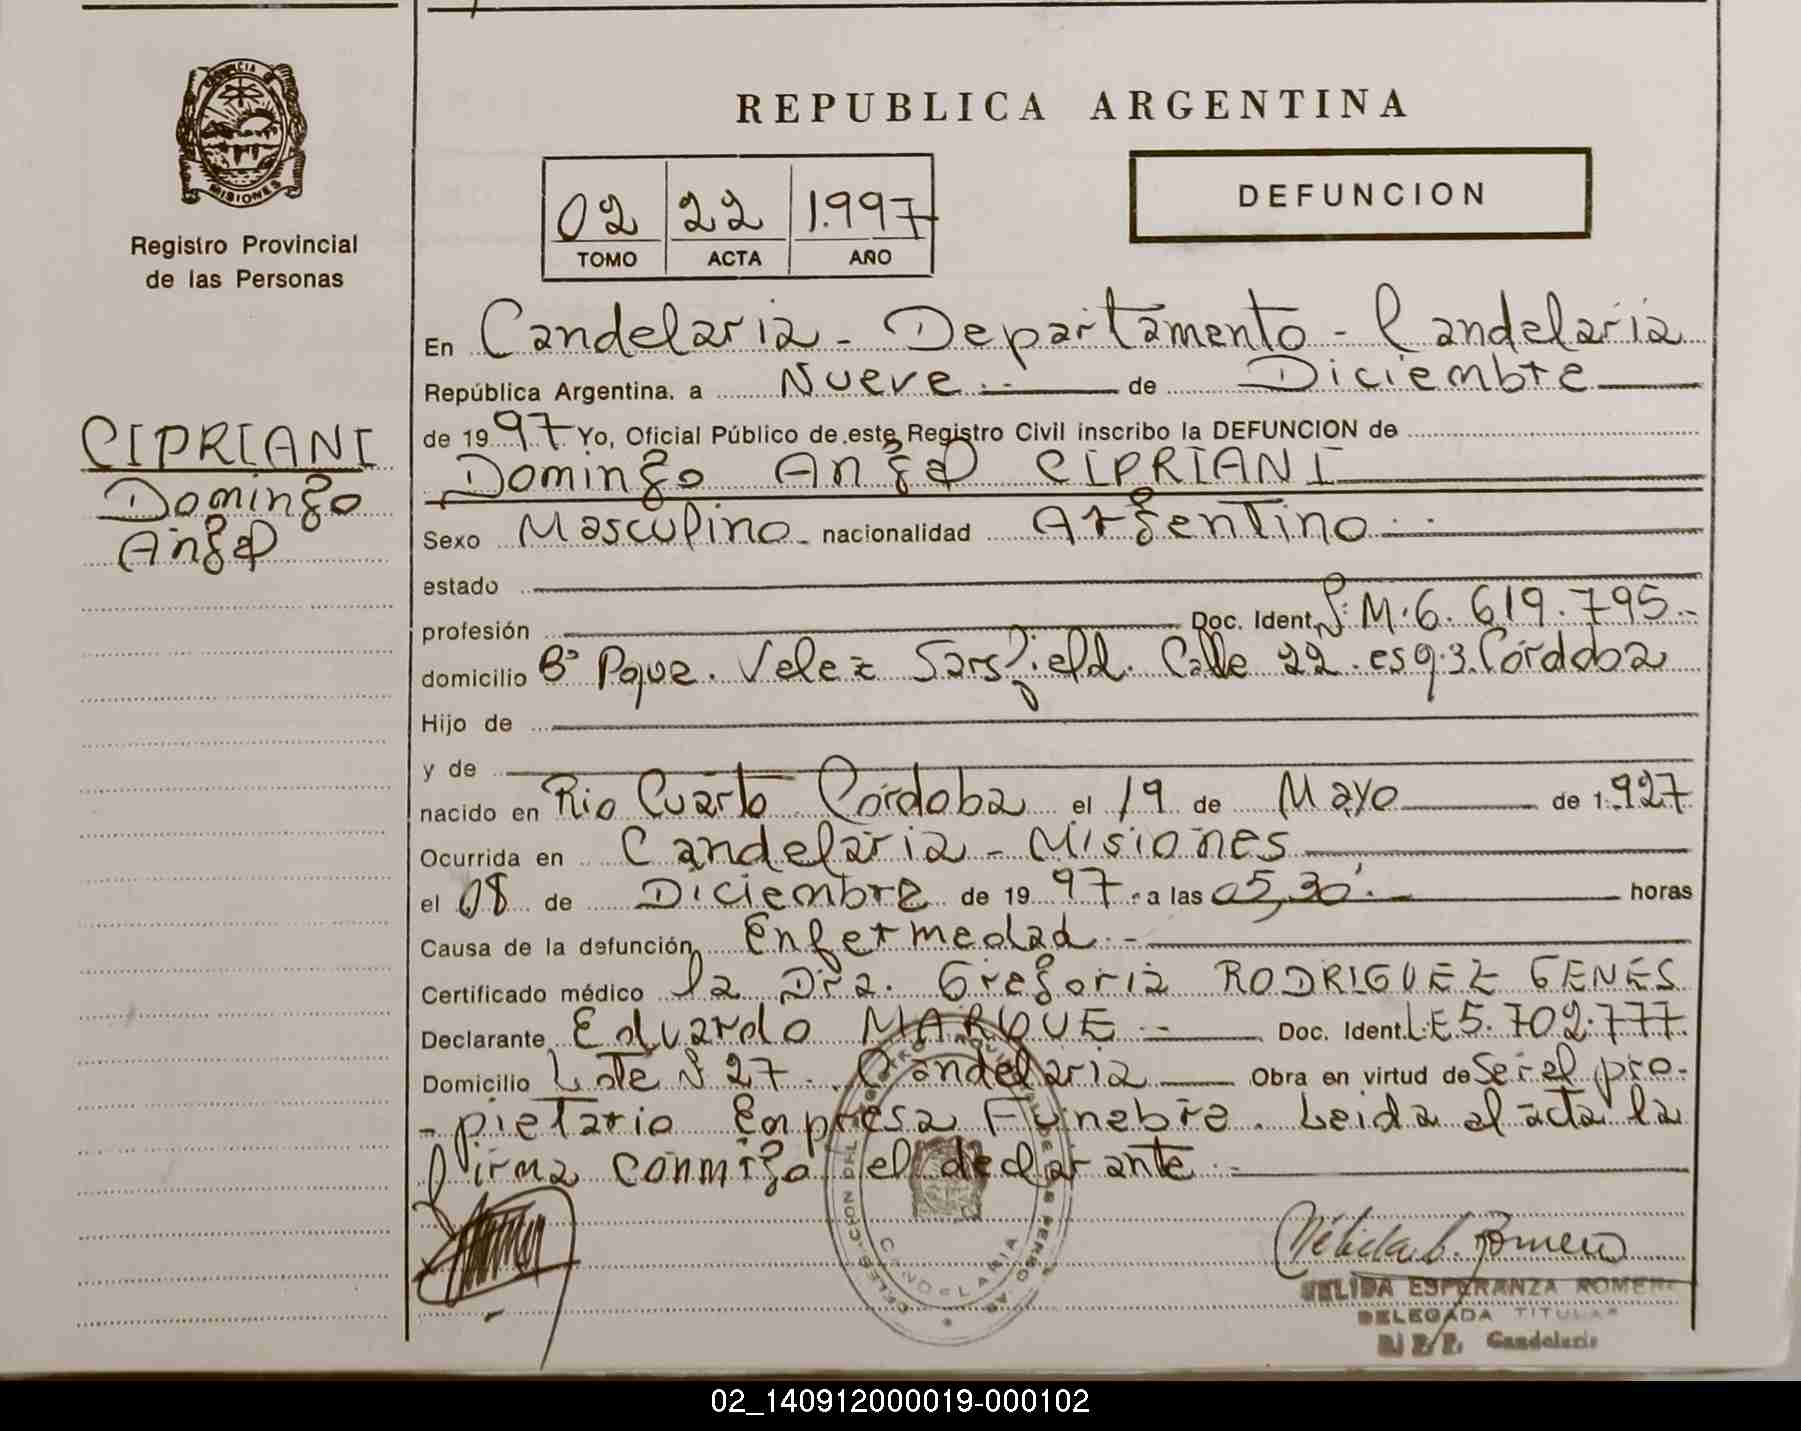 REPUBLICA ARGENTINA
PROVINCIA DE
MISIONES
Registro Provincial
de las Personas
02 22 1.997
TOMO ACTA AÑO
DEFUNCION
CIPRIANI
Domingo
Angel
En Candelaria - Departamento - Candelaria
República Argentina, a Nueve.- de Diciembre
de 1997 Yo, Oficial Público de este Registro Civil inscribo la DEFUNCION de
Domingo Angel CIPRIANI
Sexo Masculino - nacionalidad Argentino.-
estado
profesión Doc. Ident. L.M.6.619.795.-
domicilio Bº Pque. Velez Sarsfield. Calle 22. esq.3. Córdoba
Hijo de
y de
nacido en Rio Cuarto Córdoba el 19 de Mayo de 1.927
Ocurrida en Candelaria - Misiones
el 08 de Diciembre de 1997.- a las 05,30'.- horas
Causa de la defunción Enfermedad.-
Certificado médico la Dra. Gregoria RODRIGUEZ GENES
Declarante Eduardo MARQUE.- Doc. Ident. LE 5.702.777
Domicilio Lote Nº 27.. Candelaria Obra en virtud de Ser el pro-
-pietario Empresa Fúnebre. Leida el acta la
firma conmigo el declarante.-
Nélida E. Romero
NELIDA ESPERANZA ROMERO
DELEGADA TITULAR
R. P. P. Candelaria
02_140912000019-000102